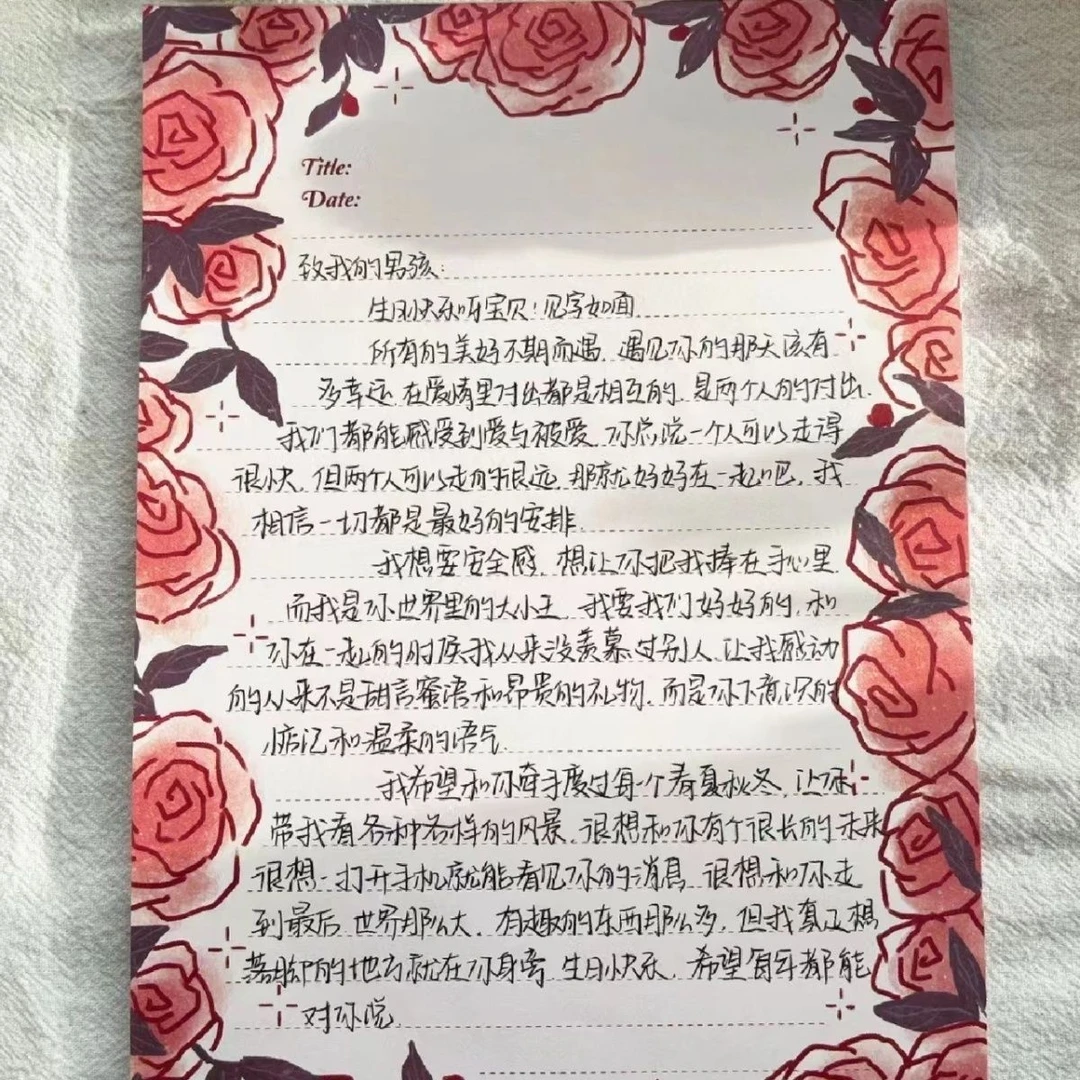 Title:
Date:
致我的男孩:
生日快乐呀宝贝!见字如面
所有的美好不期而遇,遇见你的那天该有
多幸运,在爱情里付出都是相互的,是两个人的付出.
我们都能感受到爱与被爱,你总说一个人可以走得
很快,但两个人可以走的很远,那就好好在一起吧,我
相信一切都是最好的安排.
我想要安全感,想让你把我捧在手心里
而我是你世界里的大小王,我要我们好好的,和
你在一起的时候我从来没羡慕过别人,让我感动
的从来不是甜言蜜语和昂贵的礼物,而是你下意识的
惦记和温柔的语气.
我希望和你牵手度过每一个春夏秋冬,让你
带我看各种各样的风景,很想和你有个很长的未来
很想一打开手机就能看见你的消息,很想和你走
到最后,世界那么大,有趣的东西那么多,但我真正想
落脚的地方就在你身旁,生日快乐,希望每年都能
对你说.